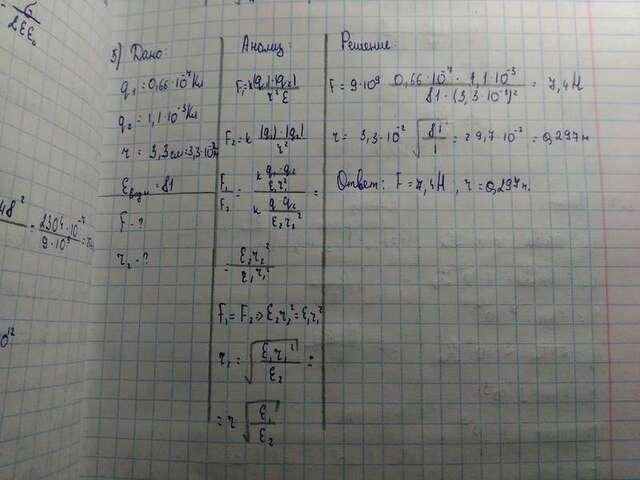 σ
2εε₀
48²
= 2304·10⁻⁷
9·10⁹
5) Дано:
q₁ = 0,66·10⁻⁷ Кл
q₂ = 1,1·10⁻³ Кл
r = 3,3 см = 3,3·10⁻² м
= 81
F - ?
r₂ - ?
Анализ:
F₁ = k |q₁|·|q₂| / r²ε
F₂ = k |q₁|·|q₂| / r²
F₁/F₂ =
= ε₂r₂² / ε₁r₁²
F₁ = F₂ => ε₂r₂² = ε₁r₁²
= √(ε₁r₁² / ε₂) =
= r √(ε₁/ε₂)
Решение:
F = 9·10⁹ 0,66·10⁻⁷ · 1,1·10⁻³ / 81·(3,3·10⁻²)² = 7,4 Н
r = 3,3·10⁻² √(81/1) = 29,7·10⁻² = 0,297 м
Ответ: F = 7,4 Н, r = 0,297 м.